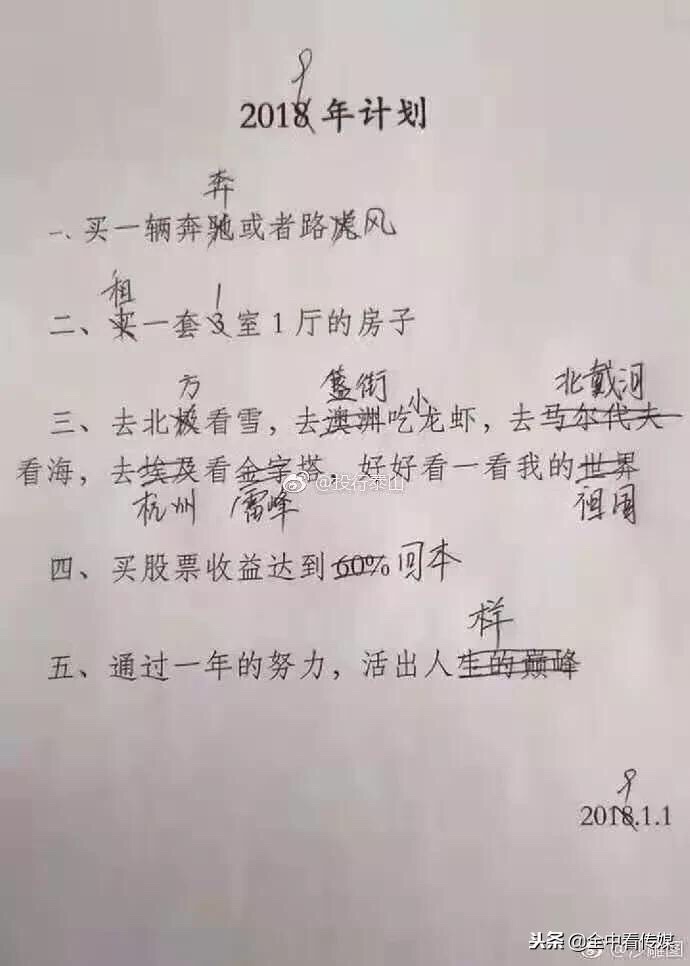 9
2018年计划
奔
一、买一辆奔驰或者路虎风
租 1
二、买一套3室1厅的房子
方 簋街 小 北戴河
三、去北极看雪，去澳洲吃龙虾，去马尔代夫
看海，去埃及看金字塔，好好看一看我的世界
@投行泰山
杭州 雷峰 祖国
四、买股票收益达到60%回本
样
五、通过一年的努力，活出人生的巅峰
9
2018.1.1
头条 @全中看传媒
@沙雕图